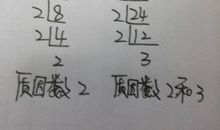 2 8 2 24
2 4 2 12
2 3
质因数 2 质因数 2和3